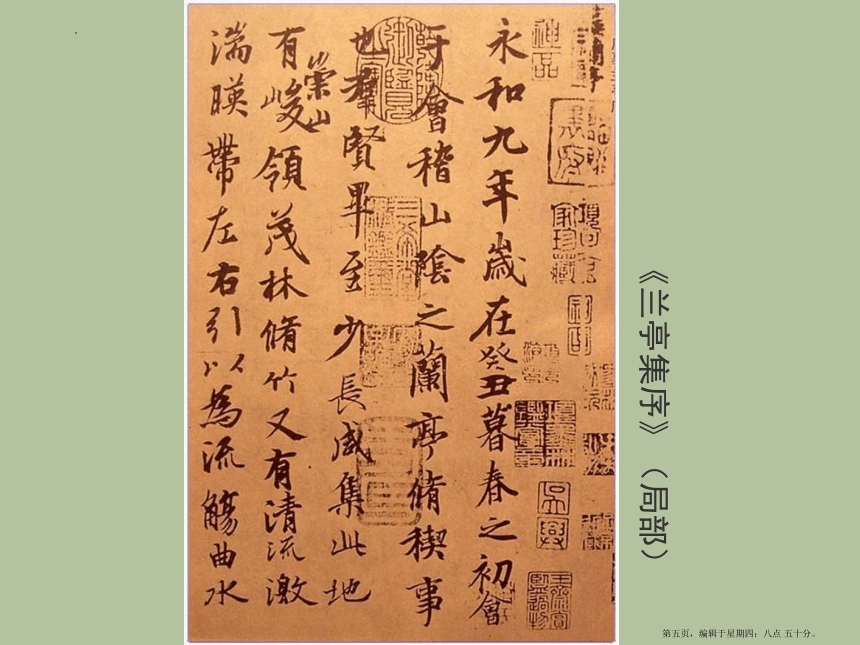 永和九年歲在癸丑暮春之初會
于會稽山陰之蘭亭脩稧事
也羣賢畢至少長咸集此地
有崇山峻領茂林脩竹又有清流激
湍暎帶左右引以為流觴曲水
《兰亭集序》（局部）
第五页，编辑于星期四：八点 五十分。